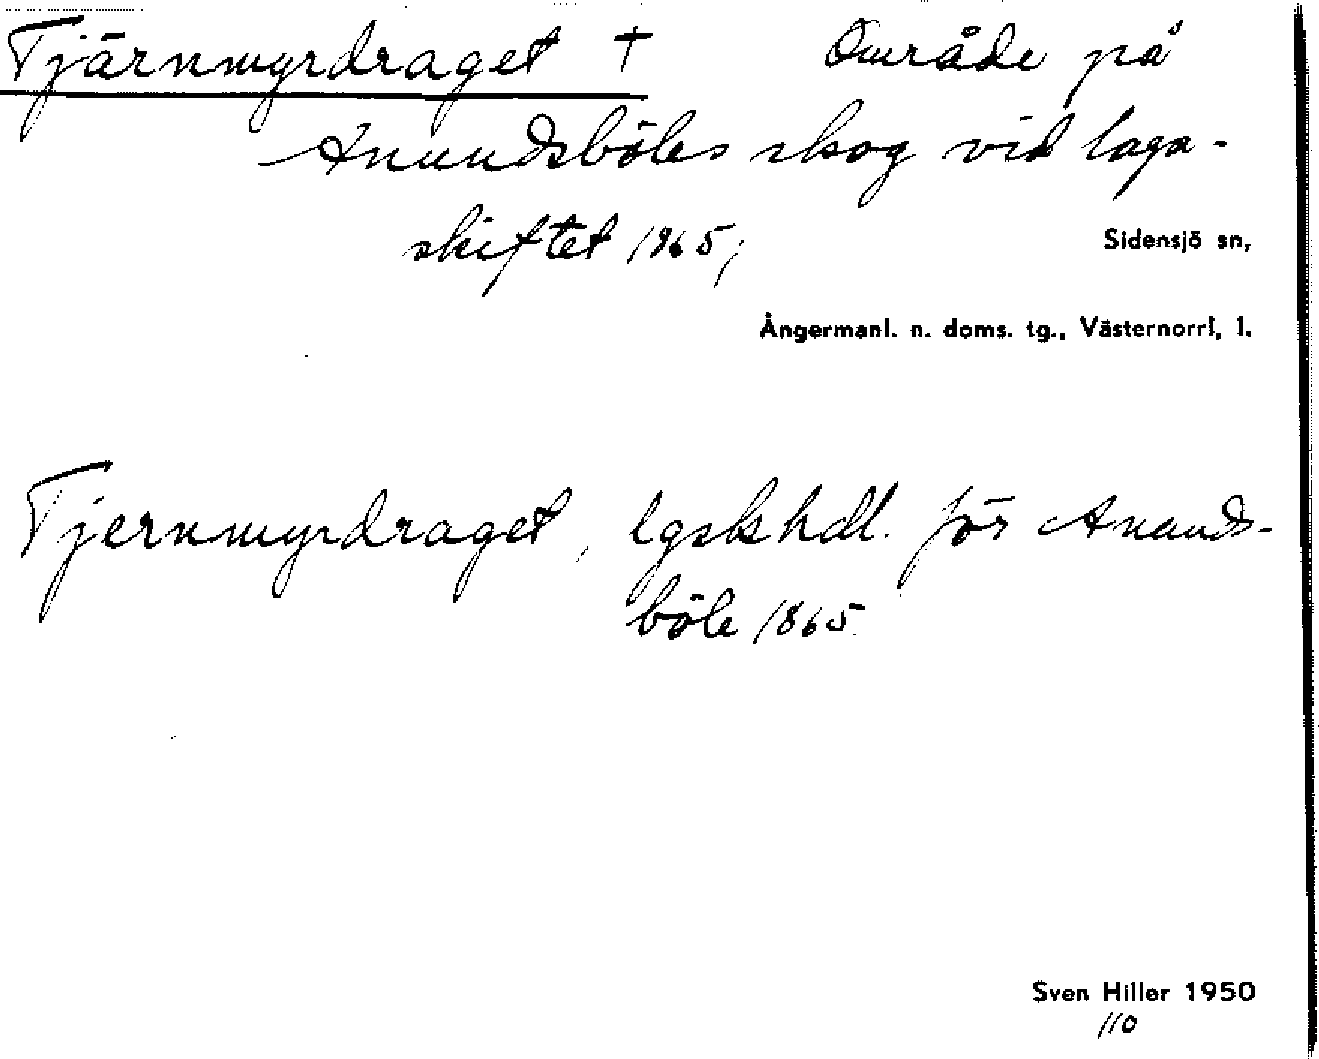 Tjärnmyrdraget † Område på
Anundsböles skog vid laga-
skiftet 1865;
Sidensjö sn,
Ångermanl. n. doms. tg., Västernorrl. l.
Tjernmyrdraget, lgskhdl. för Anunds-
böle 1865
Sven Hiller 1950
110